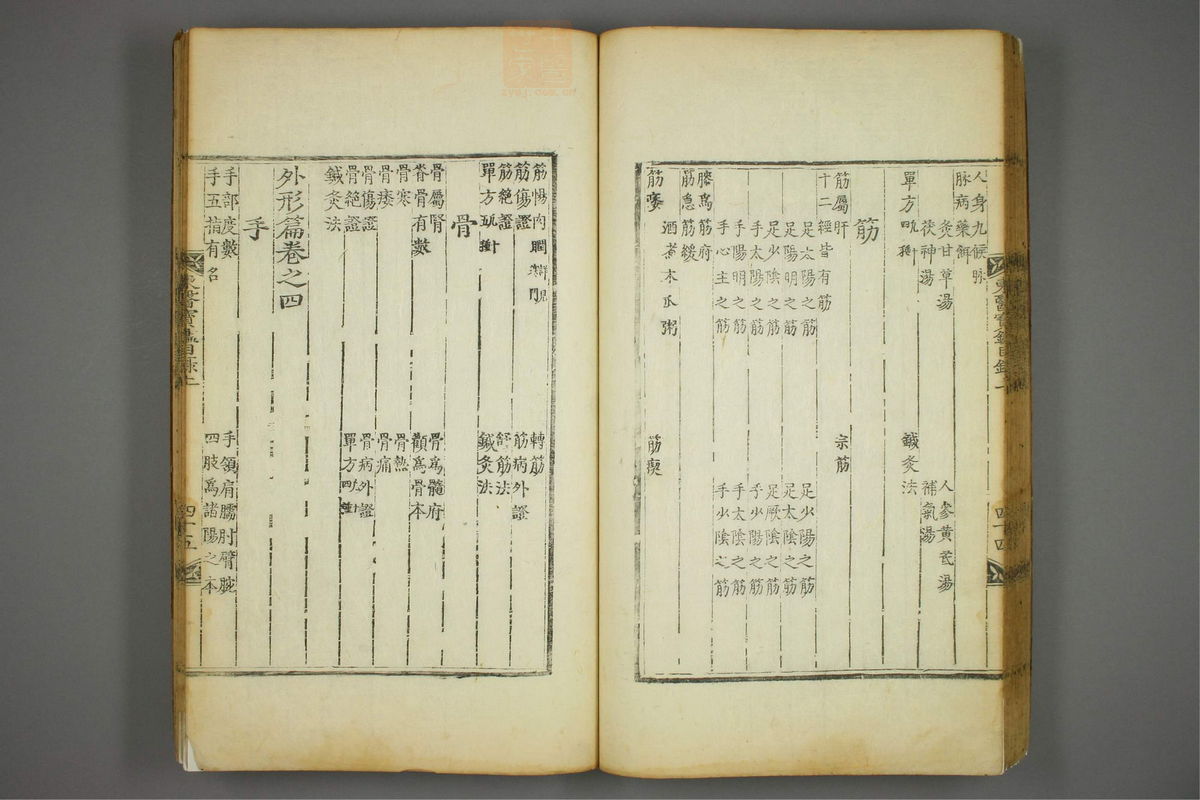 人身九候脉
脉病藥餌
炙甘草湯
人參黃芪湯
茯神湯
補氣湯
單方
鍼灸法
筋
筋屬肝
宗筋
十二經皆有筋
足太陽之筋
足少陽之筋
足陽明之筋
足太陰之筋
足少陰之筋
足厥陰之筋
手太陽之筋
手少陽之筋
手陽明之筋
手太陰之筋
手心主之筋
手少陰之筋
膝爲筋府
筋急筋緩
酒煮木瓜粥
筋痿
筋
東醫寶鑑目錄上
四十四
筋惕肉瞤
轉筋
筋傷證
筋病外證
筋絕證
舒筋法
單方
鍼灸法
骨
骨屬腎
骨爲髓府
脊骨有數
顱爲骨本
骨寒
骨熱
骨痿
骨痛
骨傷證
骨病外證
骨絕證
單方
鍼灸法
外形篇卷之四
手
手部度數
手領肩臑肘臂腕
手五指有名
四肢爲諸陽之本
東醫寶鑑目錄上
四十五